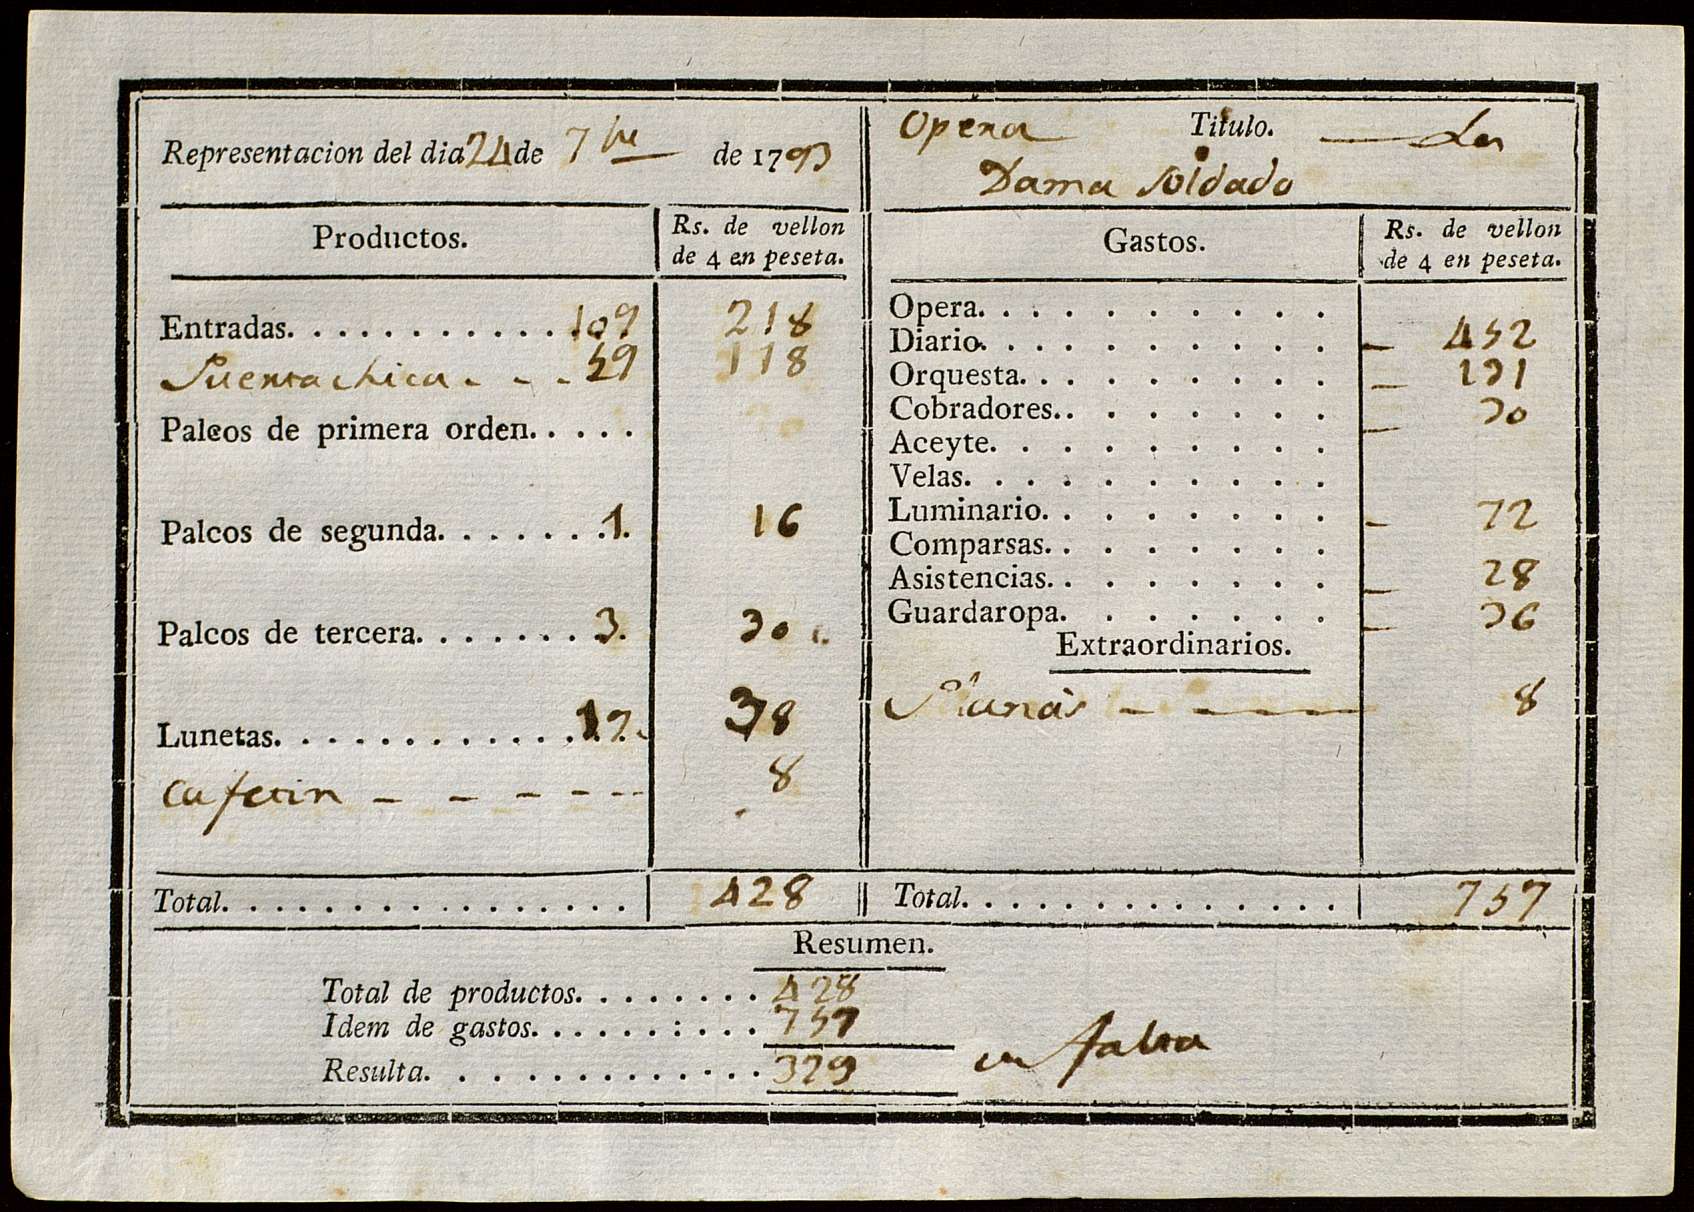 Representacion del dia 24 de 7bre de 1793
Opera Titulo. La
Dama Soldado
Productos. Rs. de vellon
de 4 en peseta.
Entradas. . . . . . . . . . . 109 218
Puerta chica - - - 59 118
Palcos de primera orden. . . . .
Palcos de segunda. . . . . . . 1. 16
Palcos de tercera. . . . . . . 3. 30
Lunetas. . . . . . . . . . . . 19. 38
Cafetin - - - - - - 8
Total. . . . . . . . . . . . . . . . 428
Gastos. Rs. de vellon
de 4 en peseta.
Opera. . . . . . . . . .
Diario. . . . . . . . . . 452
Orquesta. . . . . . . . . 131
Cobradores. . . . . . . . 30
Aceyte. . . . . . . . .
Velas. . . . . . . . . .
Luminario. . . . . . . . 72
Comparsas. . . . . . . .
Asistencias. . . . . . . . 28
Guardaropa. . . . . . . 36
Extraordinarios.
8
Total. . . . . . . . . . . . . . . 757
Resumen.
Total de productos. . . . . . . . 428
Idem de gastos. . . . . . : . . . 757
Resulta. . . . . . . . . . . . . 329 en falta